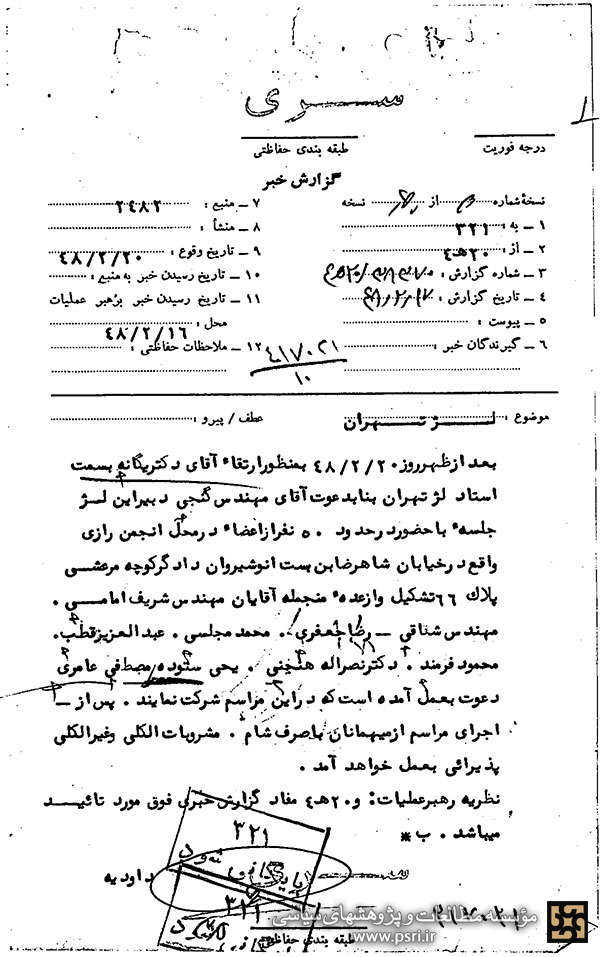 سری
درجه فوریت
طبقه بندی حفاظتی
گزارش خبر
نسخهٔ شماره از نسخه
۱ ـ به : ۳۲۱
۲ ـ از : ۲۰هـ٤
۳ ـ شماره گزارش :
٤ ـ تاریخ گزارش : ٤۸٫۲٫۱۷
٥ ـ پیوست :
٦ ـ گیرندگان خبر :
۷ ـ منبع : ۲٤۸۲
۸ ـ منشأ :
۹ ـ تاریخ وقوع : ٤۸/۲/۲۰
۱۰ ـ تاریخ رسیدن خبر به منبع :
۱۱ ـ تاریخ رسیدن خبر برهبر عملیات
محل : ٤۸/۲/۱٦
۱۲ ـ ملاحظات حفاظتی :
٤۱۷۰۲۱
۱۰
موضوع : لــژ تهــران
عطف / پیرو :
بعد ازظهرروز ٤۸/۲/۲۰ بمنظورارتقاء آقای دکتریگانه بسمت
استاد لژ تهران بنابدعوت آقای مهندس گنجی دبیراین لــژ
جلسه ء باحضورد رحدود ٥۰ نفرازاعضاء درمحل انجمن رازی
واقع درخیابان شاهرضابن بست انوشیروان دادگرکوچه مرعشــی
پلاک ٦٦تشکیل وازعده ء منجمله آقایان مهندس شریف امامــی .
مهندس شقاقی ــ رضاجعفری . محمد مجلسی . عبدالعزیزقطب .
محمود فرمند . دکترنصراله هلچنی . یحی ستوده مصطفی عامری
دعوت بعمل آمده است که دراین مراسم شرکت نمایند . پس از ــ
اجرای مراسم ازمیهمانان باصرف شام . مشروبات الکلی وغیرالکلی
پذیرائی بعمل خواهد آمد .
نظریه رهبرعملیات: و۲۰هـ٤ مفاد گزارش خبری فوق مورد تائیــد
میباشد . ب *
۳۲۱
شود
ســری
داودیه
۳۲۱
طبقه بندی حفاظتی
مؤسسه مطالعات و پژوهشهای سیاسی
www.psri.ir